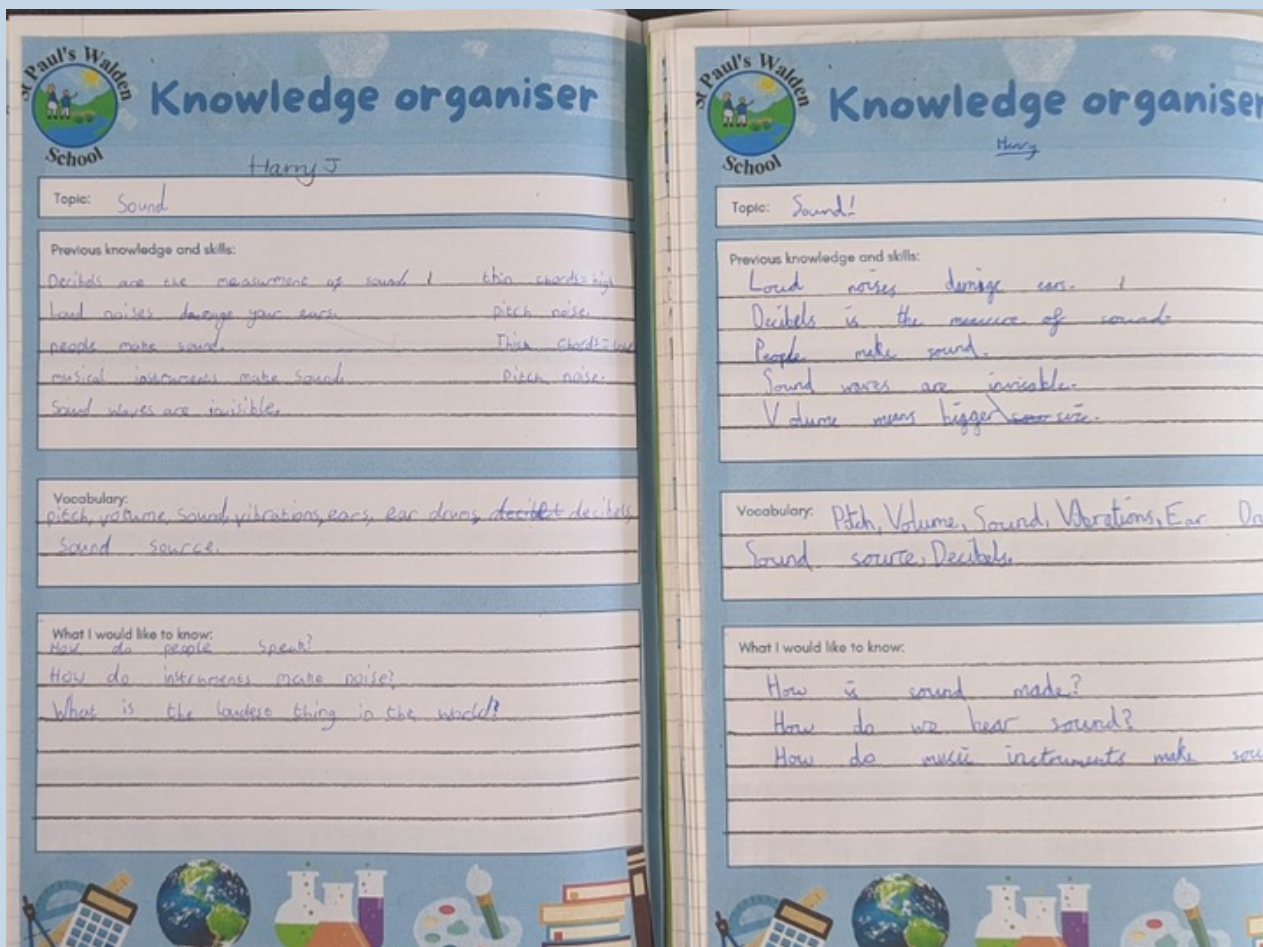 St Paul's Walden
School
Knowledge organiser
Harry J
Topic: Sound
Previous knowledge and skills:
Decibels are the measurment of sound. thin chords=high
Loud noises damage your ears. pitch noise.
people make sound. Thick chords=low
musical instruments make sound. Pitch noise.
Sound waves are invisible.
Vocabulary:
pitch, volume, sound, vibrations, ears, ear drum, decibels
Sound source.
What I would like to know:
How do people speak?
How do instruments make noise?
What is the loudest thing in the world?
St Paul's Walden
School
Knowledge organiser
Henry
Topic: Sound!
Previous knowledge and skills:
Loud noises damage ears.
Decibels is the measure of sound.
People make sound.
Sound waves are invisable.
Volume means bigger size.
Vocabulary: Pitch, Volume, Sound, Viberations, Ear
Sound source, Decibels.
What I would like to know:
How is sound made?
How do we hear sound?
How do music instruments make sou